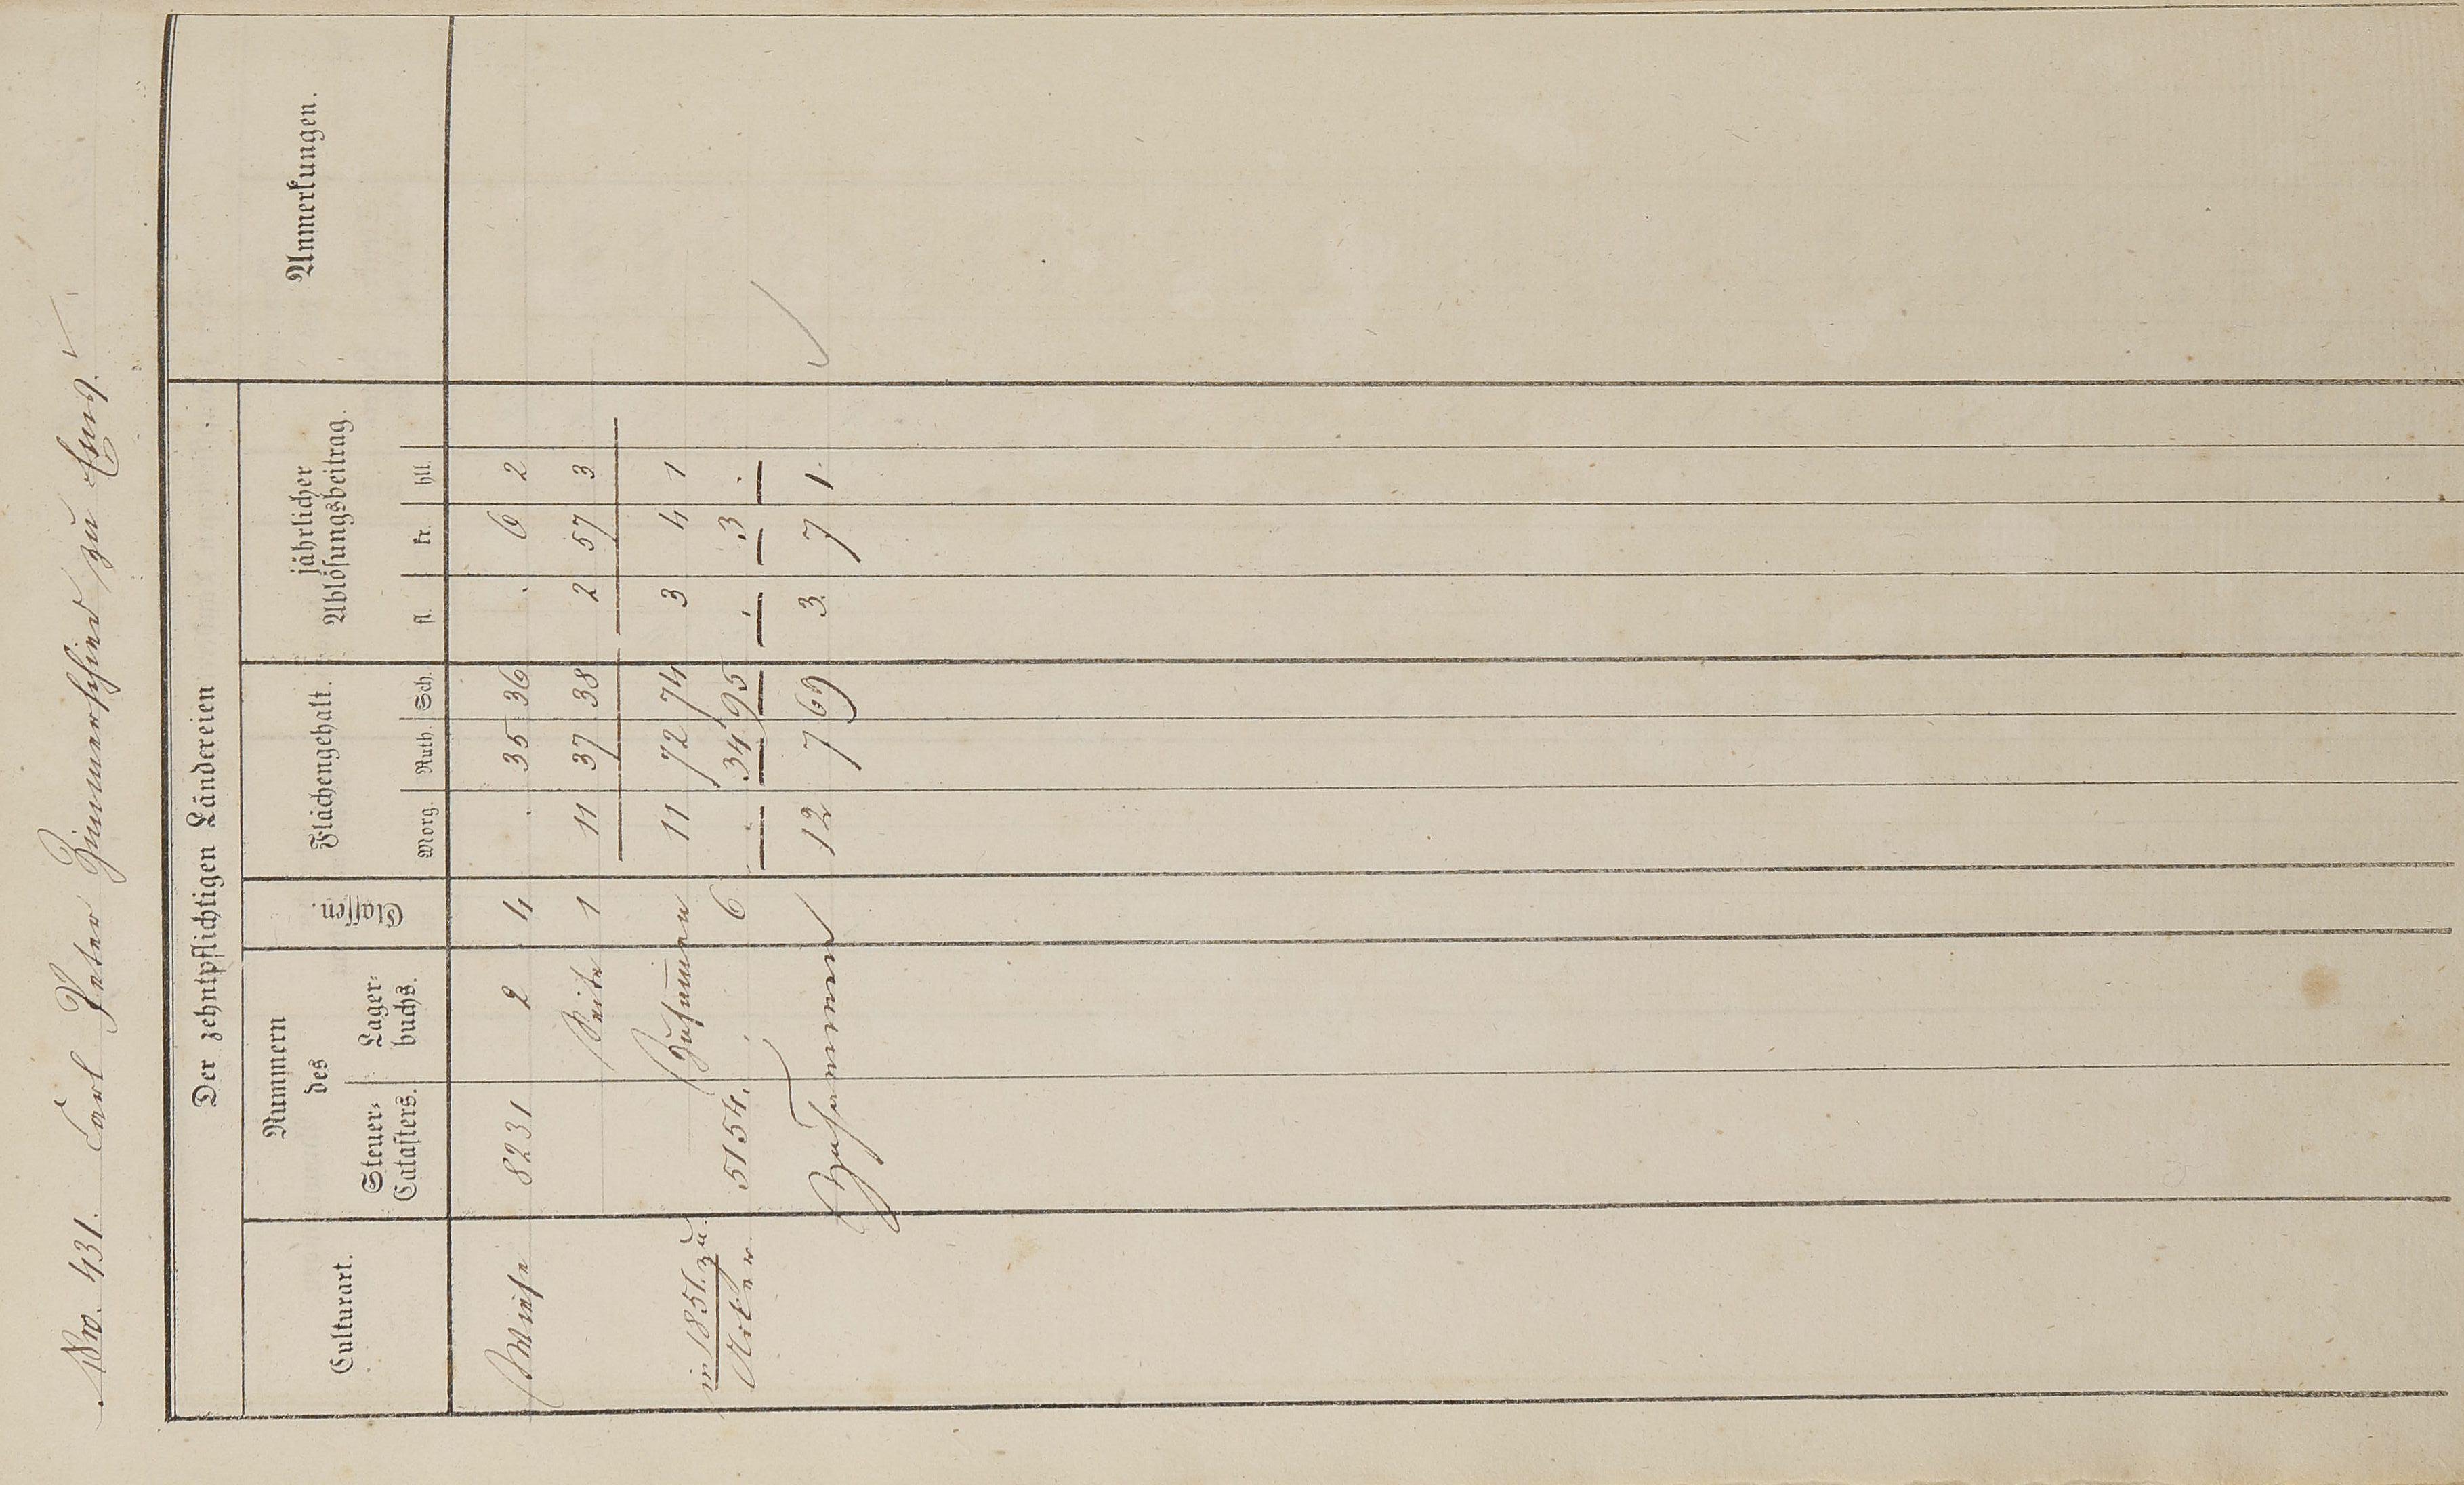 No. 431. Carl Peter Zimmerschied zu Ems.
Der zehntpflichtigen Ländereien
Anmerkungen.
Culturart.
Nummern des
Steuer-Catasters.
Lager-buchs.
Classen.
Flächengehalt.
Morg. Ruth. Sch.
jährlicher Ablösungsbeitrag.
fl. kr. hll.
Wiese 8231 2 4 . 35 36 . 6 2
Seite 1 11 37 38 2 57 3
Zusammen 11 72 74 3 4 1
in 1851. zu
Acker 5154. 6 . 34 95 . 3 .
Zusammen 12 7 69 3. 7 1.